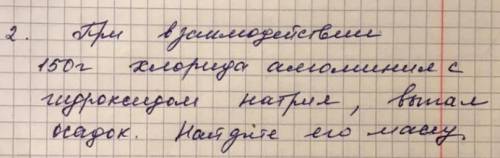 2. При взаимодействии
150г хлорида алюминия с
гидроксидом натрия, выпал
осадок. Найдите его массу.